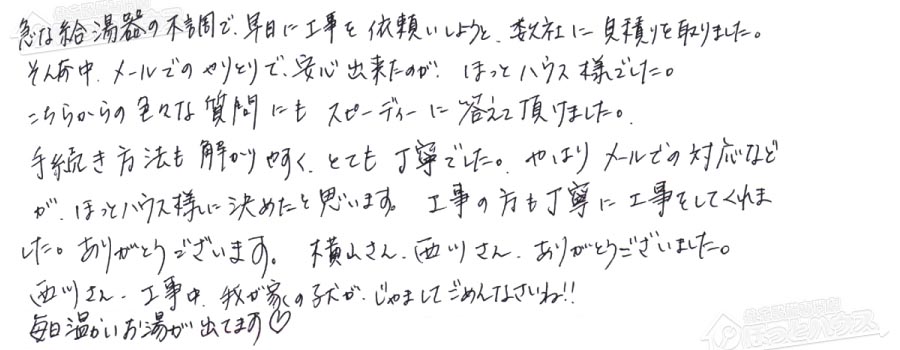 急な給湯器の不調で、早目に工事を依頼いしようと、数社に見積りを取りました。
そんな中、メールでのやりとりで、安心出来たのが、ほっとハウス様でした。
こちらからの色々な質問にもスピーディーに答えて頂けました。
手続き方法も解かりやすく、とても丁寧でした。やはりメールでの対応など
が、ほっとハウス様に決めたと思います。工事の方も丁寧に工事をしてくれま
した。ありがとうございます。横山さん、西川さん、ありがとうございました。
西川さん、工事中、我が家の子犬が、じゃましてごめんなさいね!!
毎日温かいお湯が出てます♡
ほっとハウス